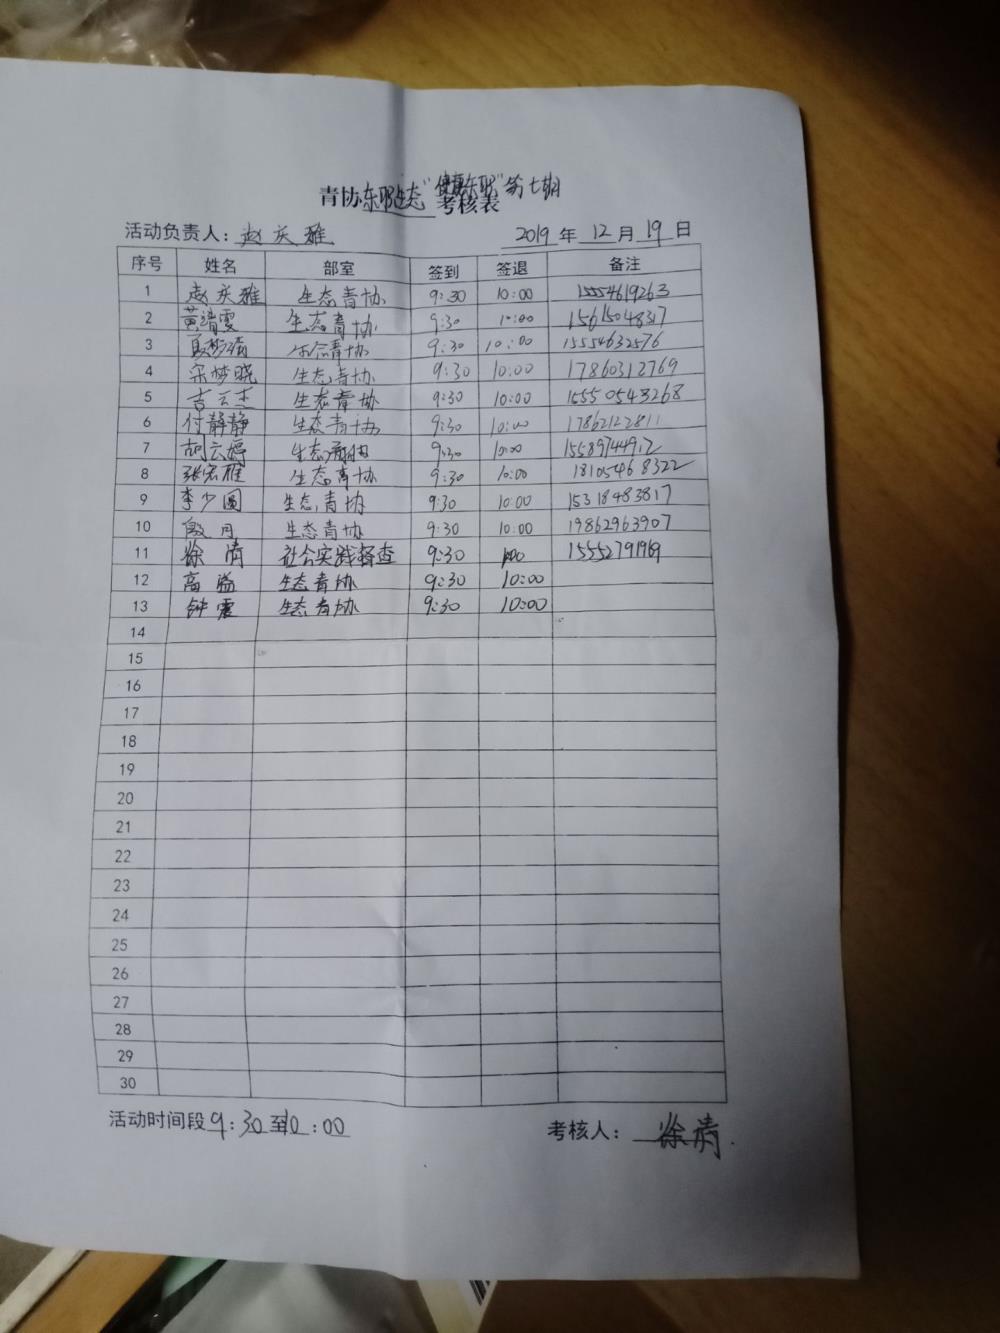 青协东职生态"健康东职"第七期
考核表
活动负责人：赵庆雅 2019年12月19日
序号 姓名 部室 签到 签退 备注
1 赵庆雅 生态青协 9:30 10:00 15554619263
2 黄清雯 生态青协 9:30 10:00 15615048317
3 生态青协 9:30 10:00 15554632576
4 宋梦晓 生态青协 9:30 10:00 17860312769
5 吉云杰 生态青协 9:30 10:00 15550543268
6 付静静 生态青协 9:30 10:00 17862122811
7 胡云婷 生态青协 9:30 10:00 15589744912
8 张宏雅 生态青协 9:30 10:00 18105468322
9 李少圆 生态青协 9:30 10:00 15318483817
10 殷月 生态青协 9:30 10:00 19862963907
11 徐清 社会实践督查 9:30 15552791969
12 高溢 生态青协 9:30 10:00
13 钟震 生态青协 9:30 10:00
14
15
16
17
18
19
20
21
22
23
24
25
26
27
28
29
30
活动时间段9:30至10:00 考核人：徐清